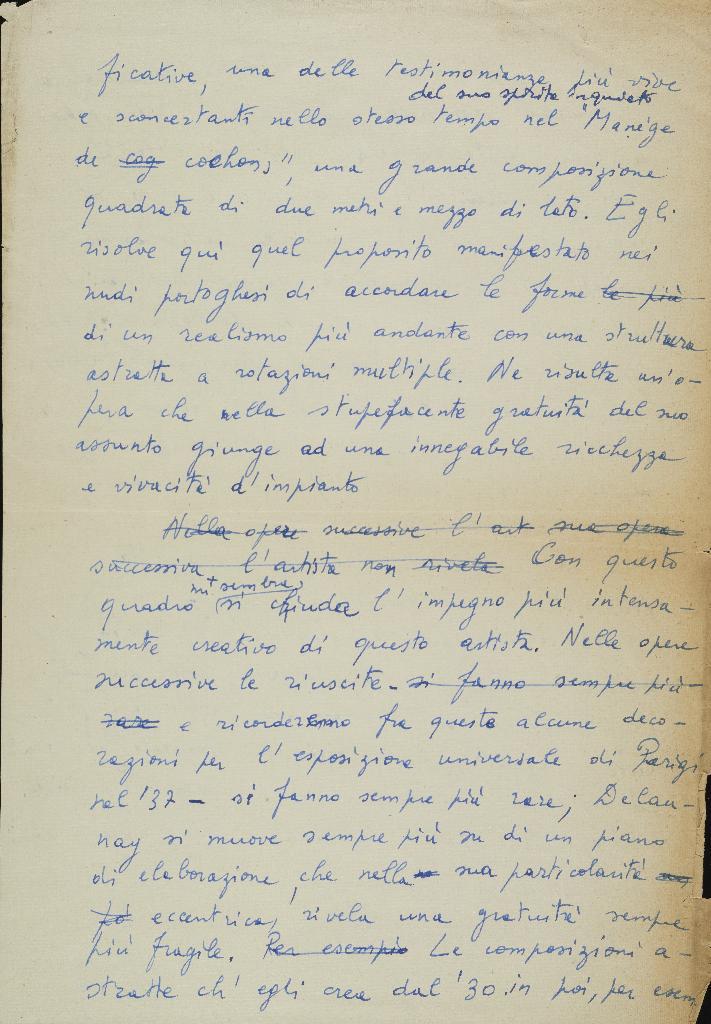 ficative, una delle testimonianze più vive
del suo spirito inquieto
e sconcertanti nello stesso tempo nel "Manège
de cog cochons", una grande composizione
quadrata di due metri e mezzo di lato. Egli
risolve quì quel proposito manifestato nei
nudi portoghesi di accordare le forme le più
di un realismo più andante con una struttura
astratta a rotazioni multiple. Ne risulta un'o-
pera che nella stupefacente gratuità del suo
assunto giunge ad una innegabile ricchezza
e vivacità d'impianto
Nella opere successive l'art sua opera
successiva l'artista non rivela Con questo
mi sembra
quadro si chiuda l'impegno più intensa-
mente creativo di questo artista. Nelle opere
successive le riuscite - si fanno sempre più
rare e ricorderemo fra queste alcune deco-
razioni per l'esposizione universale di Parigi
nel '37 - si fanno sempre più rare; Delau-
nay si muove sempre più su di un piano
di elaborazione, che nella sua particolarità
più eccentrica, rivela una gratuità sempre
più fragile. Per esempio Le composizioni a-
stratte ch'egli crea dal '30 in poi, per esem